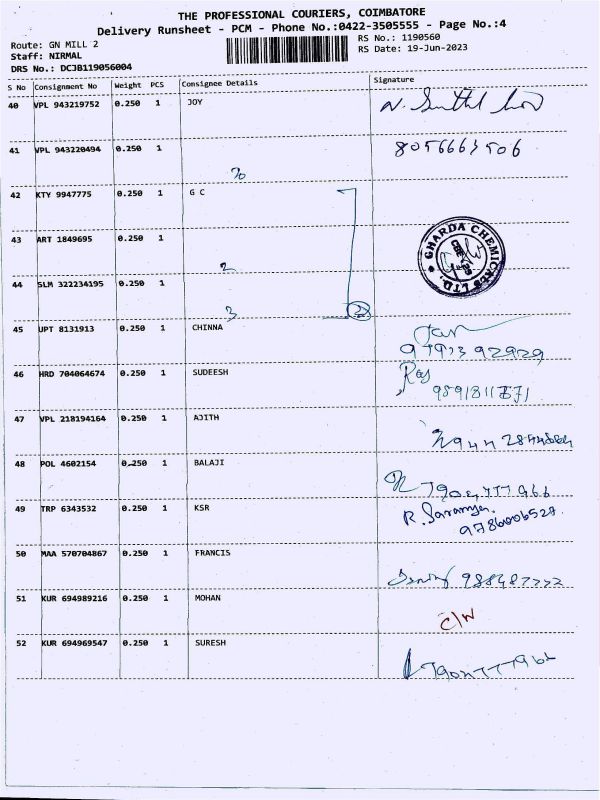 THE PROFESSIONAL COURIERS, COIMBATORE
Delivery Runsheet - PCM - Phone No.:0422-3505555 - Page No.:4
Route: GN MILL 2
RS No.: 1190560
Staff: NIRMAL
RS Date: 19-Jun-2023
DRS No.: DCJB119056004
S No Consignment No Weight PCS Consignee Details Signature
40 VPL 943219752 0.250 1 JOY
41 VPL 943220494 0.250 1 8056663506
42 KTY 9947775 0.250 1 G C
43 ART 1849695 0.250 1
GHARDA CHEMICALS LTD.
2
44 SLM 322234195 0.250 1
3
45 UPT 8131913 0.250 1 CHINNA
46 HRD 704064674 0.250 1 SUDEESH
Raj
9891811771
47 VPL 218194164 0.250 1 AJITH
48 POL 4602154 0.250 1 BALAJI
49 TRP 6343532 0.250 1 KSR
R. Saranya.
9786006527
50 MAA 570704867 0.250 1 FRANCIS
51 KUR 694989216 0.250 1 MOHAN
C/W
52 KUR 694969547 0.250 1 SURESH